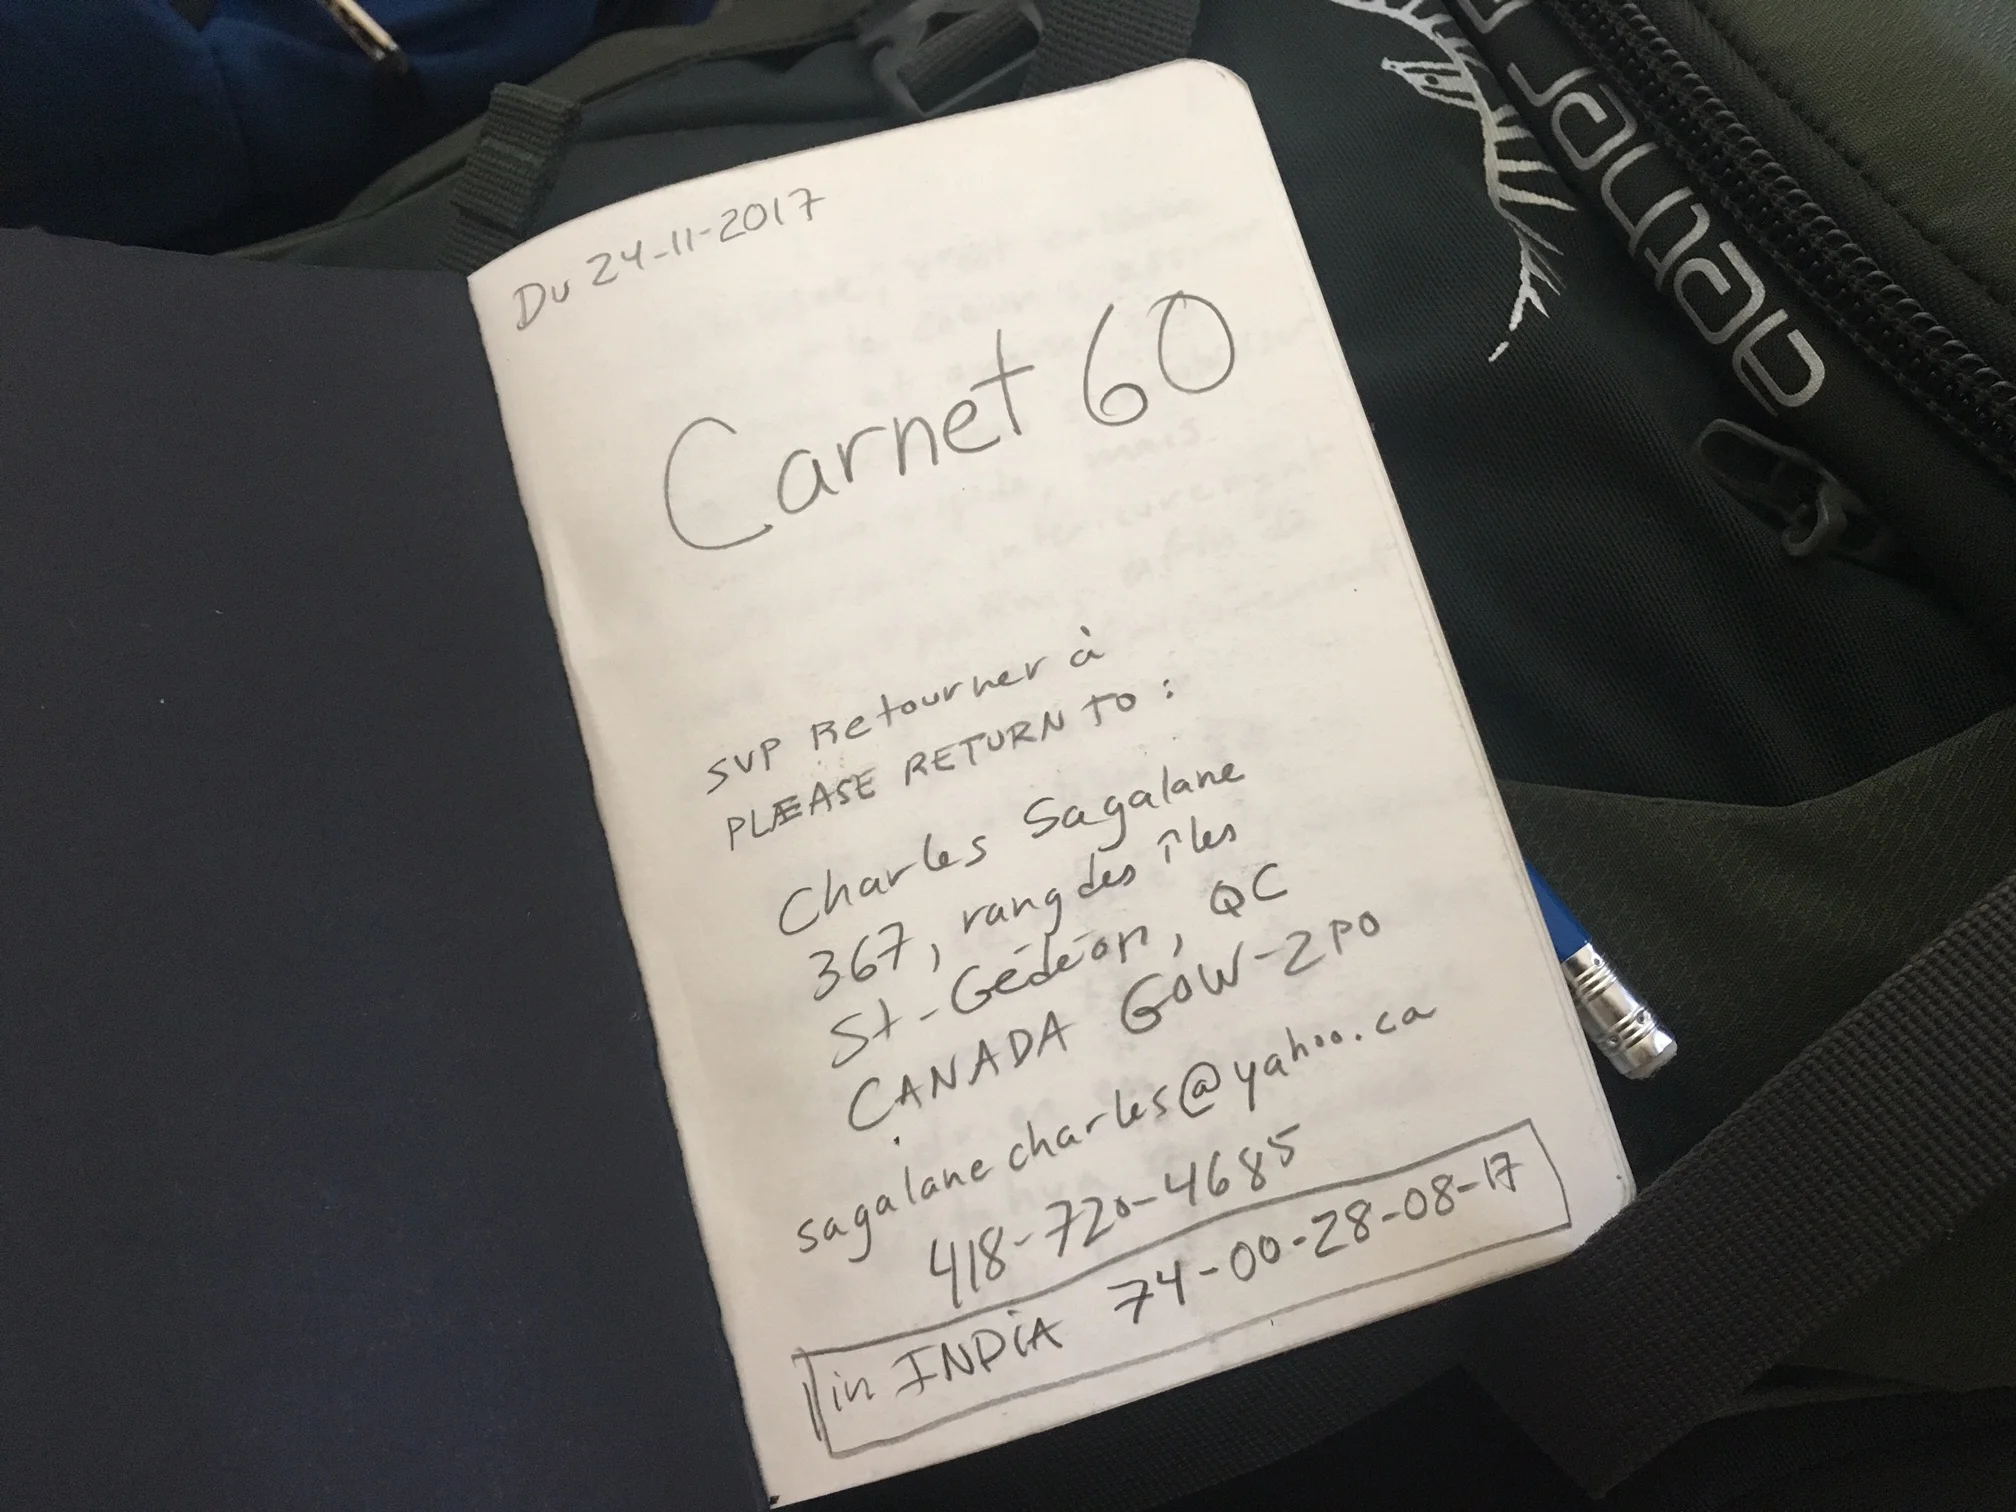 Du 24-11-2017
Carnet 60
SVP Retourner à
PLEASE RETURN TO :
Charles Sagalane
367, rang des îles
St-Gédéon, QC
CANADA G0W-2P0
sagalanecharles@yahoo.ca
418-720-4685
in INDIA 74-00-28-08-17
deuter